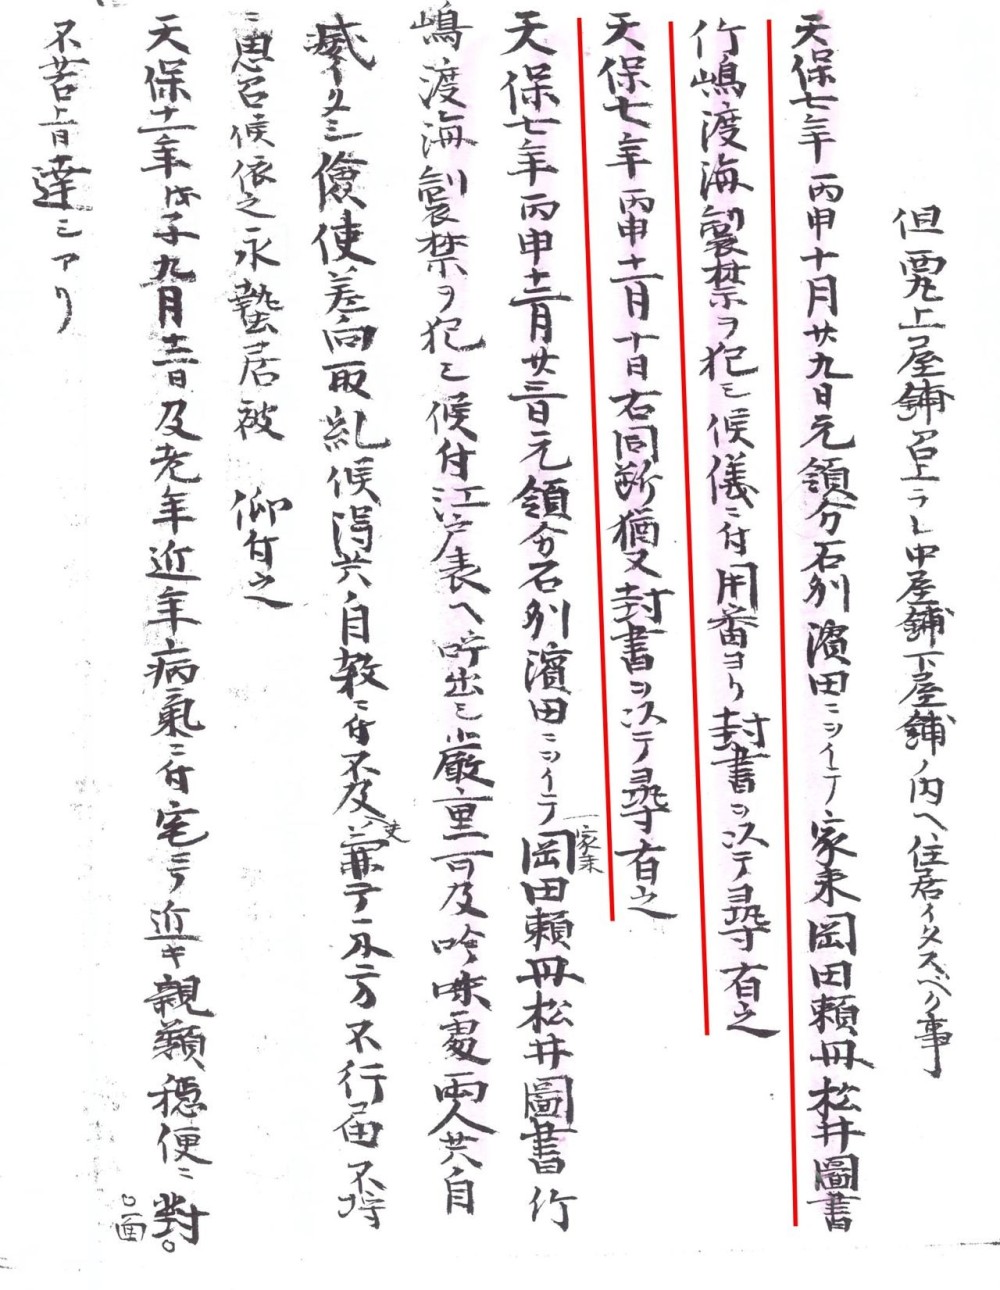 但西丸上屋鋪召上ラレ中屋鋪下屋鋪ノ内ヘ住居イタスベク事
天保七年丙申十月廿九日元領分石州濱田ニツイテ家来岡田頼母松井圖書
竹嶋渡海製禁ヲ犯シ候儀ニ付用番ヨリ封書ヲ以テ尋有之
天保七年丙申十一月十日右同断猶又封書ヲ以テ尋有之
天保七年丙申十二月廿三日元領分石州濱田ニツイテ家来岡田頼母松井圖書竹
嶋渡海製禁ヲ犯シ候付江戸表ヘ呼出シ厳重可及吟味處両人共自
滅イタシ儉使差向取糺候得共自殺ニ付不及兼テ示方不行届不埒
ニ思召候依之永蟄居被 仰付之
天保十一年庚子九月十二日及老年近年病氣ニ付宅ニテ近キ親類穏便ニ對面
不苦旨達シアリ